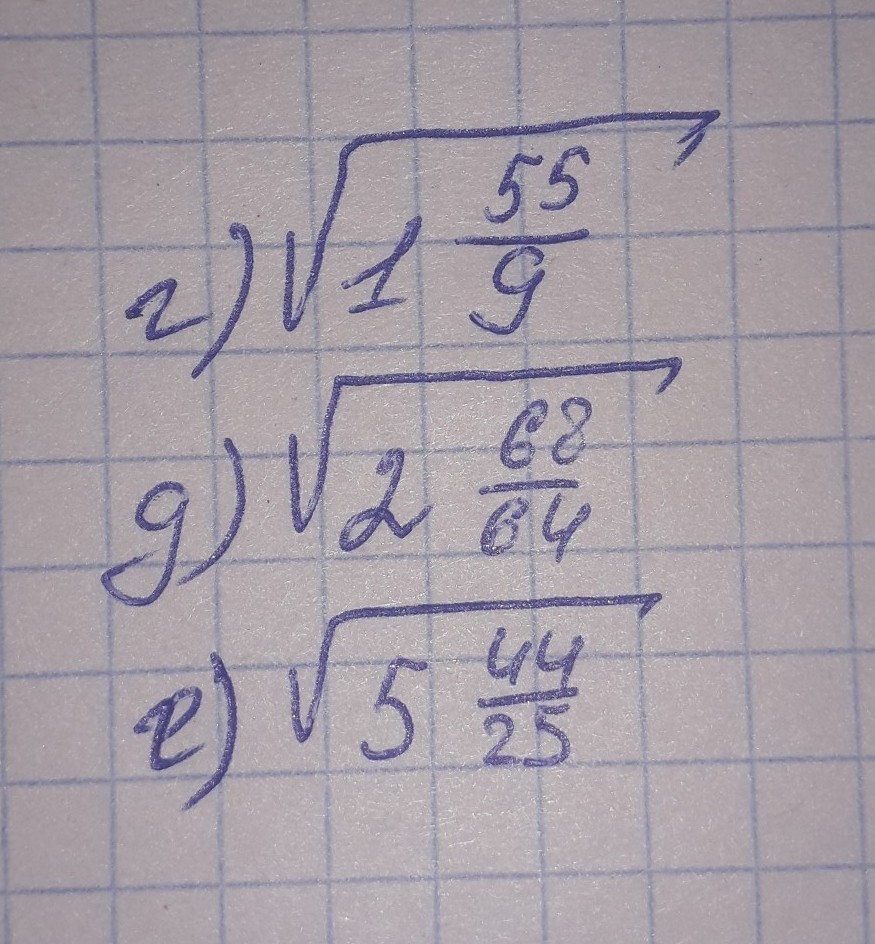 г) √1 55/9
д) √2 68/64
е) √5 44/25